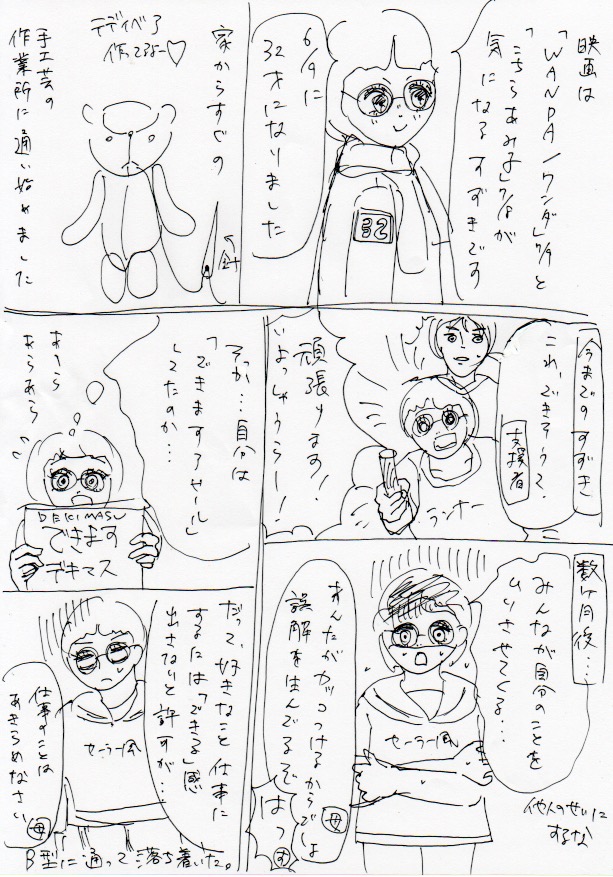 映画は
「WANDA/ワンダ」7/9と
「こちらあみ子」7/8が
気になるすずきです
6/9に
32才になりました
32
家からすぐの
テディベア
作ってるよー♡
手工芸の
作業所に通い始めました
←針
今までのすずき
これ、できそうって、
支援者
頑張ります!
いよっしゃうらー!
ランナー
そっか…自分は
「できますアピール」
してたのか…
あーら
あらあら
DEKIMASU
できます
デキマス
数ヶ月後…
みんなが自分のことを
ムリさせてくる…
あんたがカッコつけるからでしょ
誤解を生んでるぞ
母
はっ
す
セーラー風
他人のせいに
するな
だって、好きなこと仕事に
するには「できる」感
出さないと許すが…
セーラー風
仕事のことは
あきらめなさい
母
B型に通って落ち着いた。